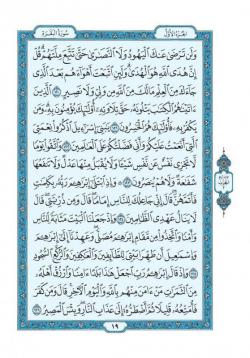 الجزء الأول
سورة البقرة
ولن ترضى عنك اليهود ولا النصارى حتى تتبع ملتهم قل
إن هدى الله هو الهدى ولئن اتبعت أهواءهم بعد الذي
جاءك من العلم ما لك من الله من ولي ولا نصير ١٢٠ الذين
آتيناهم الكتاب يتلونه حق تلاوته أولئك يؤمنون به ومن
يكفر به فأولئك هم الخاسرون ١٢١ يا بني إسرائيل اذكروا نعمتي
التي أنعمت عليكم وأني فضلتكم على العالمين ١٢٢ واتقوا يوما
لا تجزي نفس عن نفس شيئا ولا يقبل منها عدل ولا تنفعها
شفاعة ولا هم ينصرون ١٢٣ وإذ ابتلى إبراهيم ربه بكلمات
فأتمهن قال إني جاعلك للناس إماما قال ومن ذريتي قال
لا ينال عهدي الظالمين ١٢٤ وإذ جعلنا البيت مثابة للناس
وأمنا واتخذوا من مقام إبراهيم مصلى وعهدنا إلى إبراهيم
وإسماعيل أن طهرا بيتي للطائفين والعاكفين والركع السجود
١٢٥ وإذ قال إبراهيم رب اجعل هذا بلدا آمنا وارزق أهله
من الثمرات من آمن منهم بالله واليوم الآخر قال ومن كفر
فأمتعه قليلا ثم أضطره إلى عذاب النار وبئس المصير ١٢٦
١٩